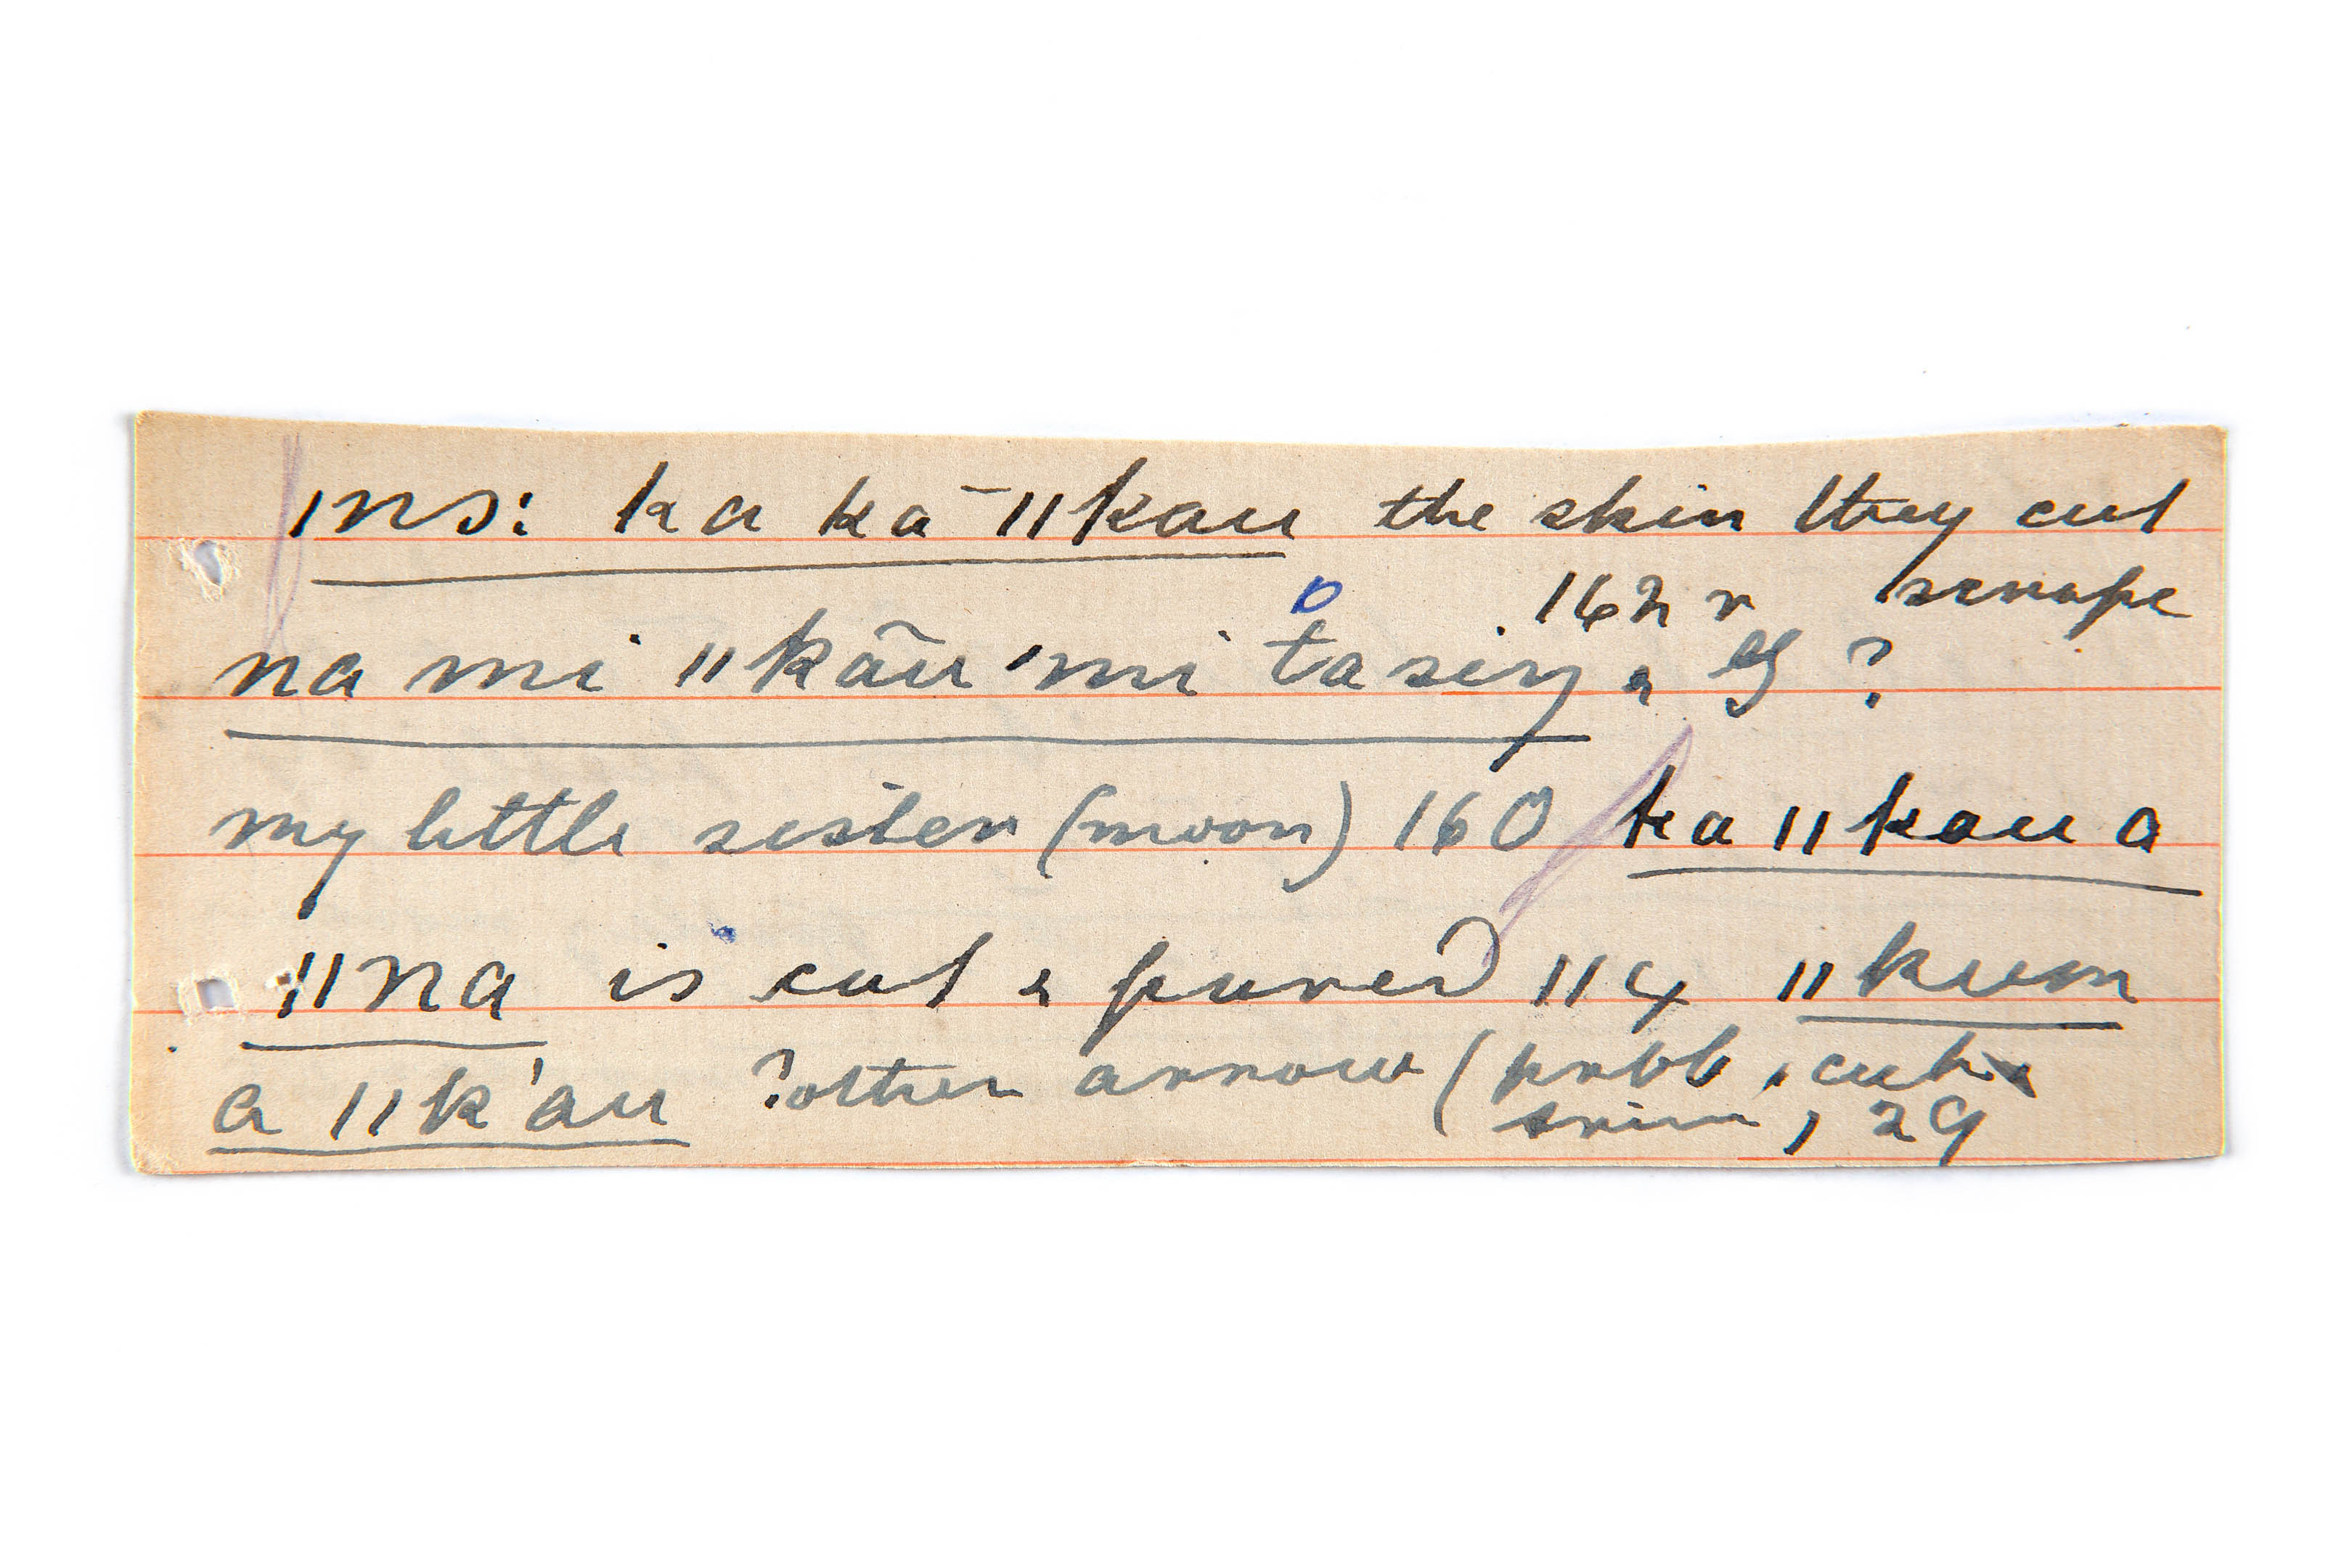 ǀns: ka ka ̄ ǁkau the skin they cut
162 r scrape
na mi ǁkãũ 'mi tasiŋ & ?
my little sister (moon) 160 ka ǁkau a
ǁna is cut & pured 114 ǁkum
a ǁk'au ?other arrow (prob. cut
29